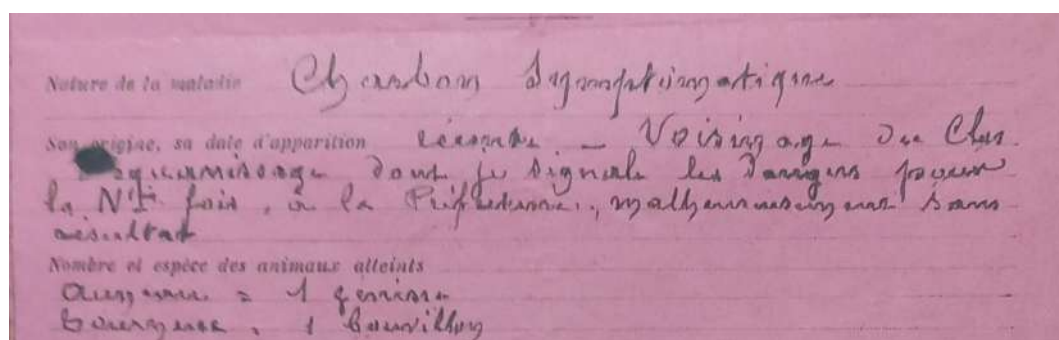 Nature de la maladie Charbon Symptômatique
Son origine, sa date d'apparition récente – Voisinage du Clos
d'équarrissage dont je signale les dangers pour
la Nième fois, à la Préfecture, malheureusement sans
résultat
Nombre et espèce des animaux atteints
= 1 génisse
1 bouvillon